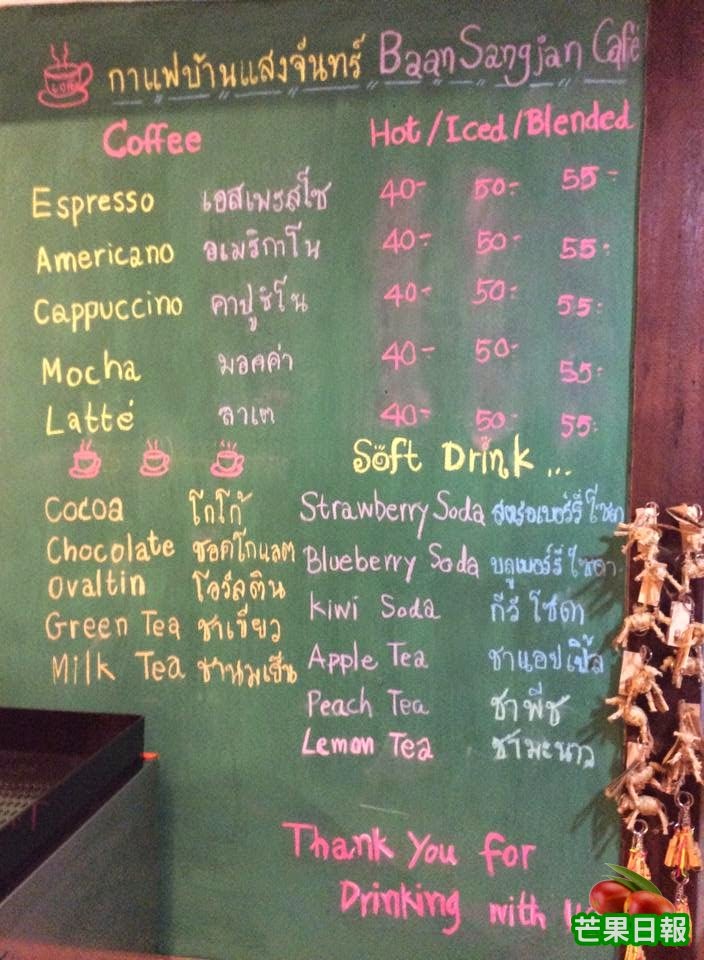 กาแฟบ้านแสงจันทร์ Baan Sangjan Café
Coffee Hot/Iced/Blended
Espresso เอสเพรสโซ 40- 50- 55-
Americano อเมริกาโน 40- 50- 55-
Cappuccino คาปูชิโน 40- 50- 55-
Mocha มอคค่า 40- 50- 55-
Latté ลาเต 40- 50- 55-
Soft Drink ...
Cocoa โกโก้
Chocolate ชอคโกแลต
Ovaltin โอวัลติน
Green Tea ชาเขียว
Milk Tea ชานมเย็น
Strawberry Soda สตรอเบอร์รี่ โซดา
Blueberry Soda บลูเบอร์รี่ โซดา
Kiwi Soda กีวี โซดา
Apple Tea ชาแอปเปิ้ล
Peach Tea ชาพีช
Lemon Tea ชามะนาว
Thank You for
Drinking with
芒果日報